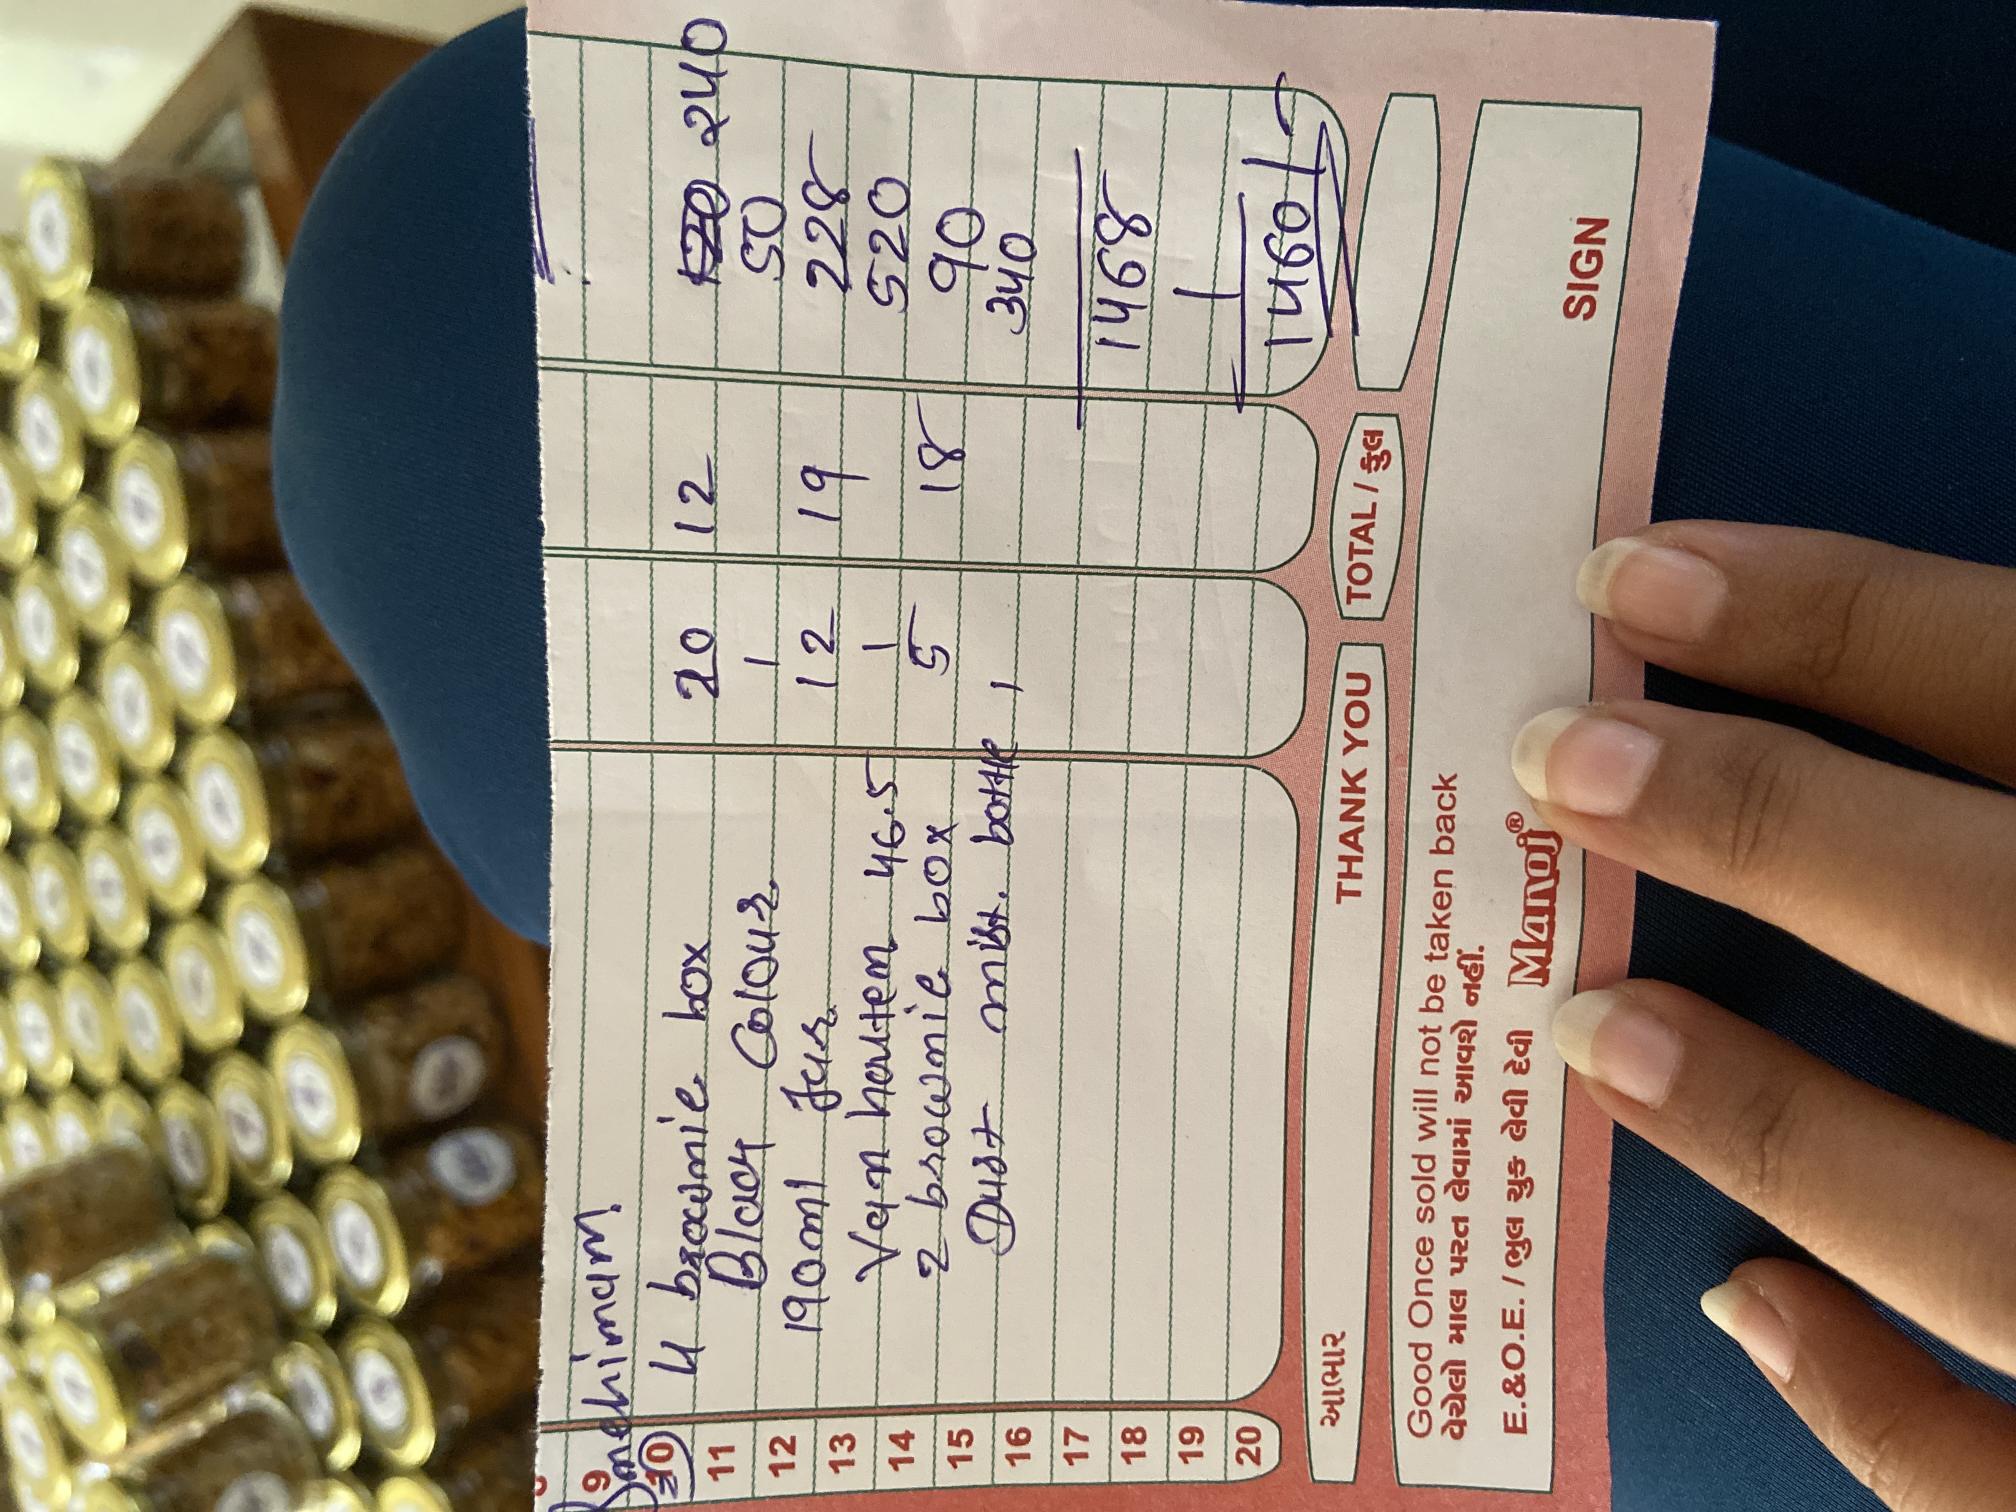 9 Snehimam.
10
4 brownie box 20 12 240
11 Blacy Colour. 1 50
12 190ml Jar. 12 19 228
13 Van houten 46.5 1 520
14 2 brownie box 5 18 90
15 Dust mist. bottle 1 340
16
17 1468
18
19
20 1460/-
આભાર THANK YOU TOTAL / કુલ
Good Once sold will not be taken back
વેચેલો માલ પરત લેવામાં આવશે નહીં.
E.&O.E. / ભુલ ચુક લેવી દેવી Manoj® SIGN